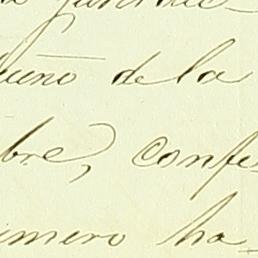 dueño de la
bre, confe-
imero ha-